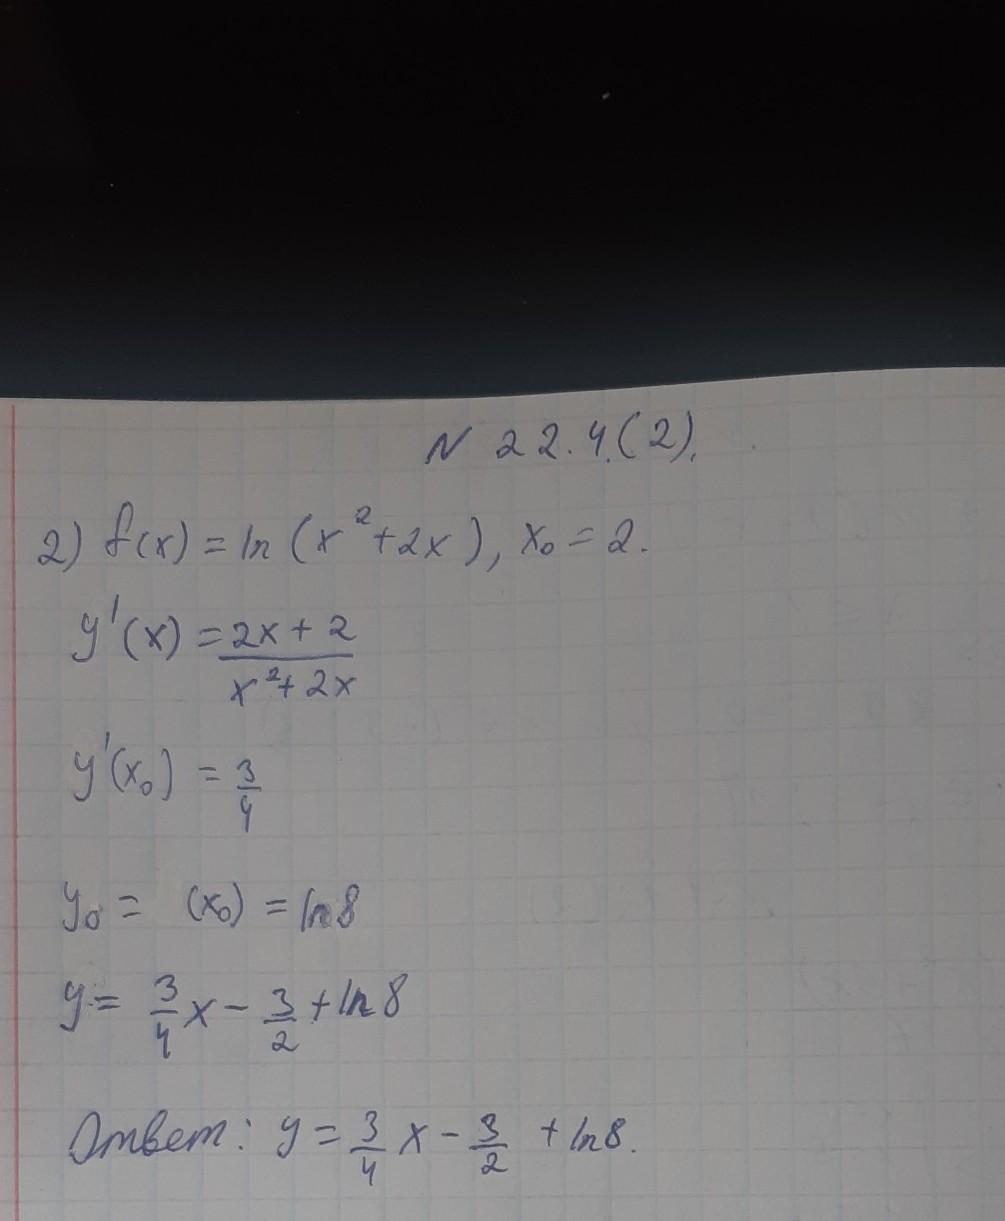 N 22.4.(2).
2) f(x) = ln (x² + 2x), x₀ = 2.
y'(x) = (2x + 2)/(x² + 2x)
y'(x₀) = 3/4
y₀ = (x₀) = ln 8
y = 3/4 x - 3/2 + ln 8
Ответ: y = 3/4 x - 3/2 + ln 8.